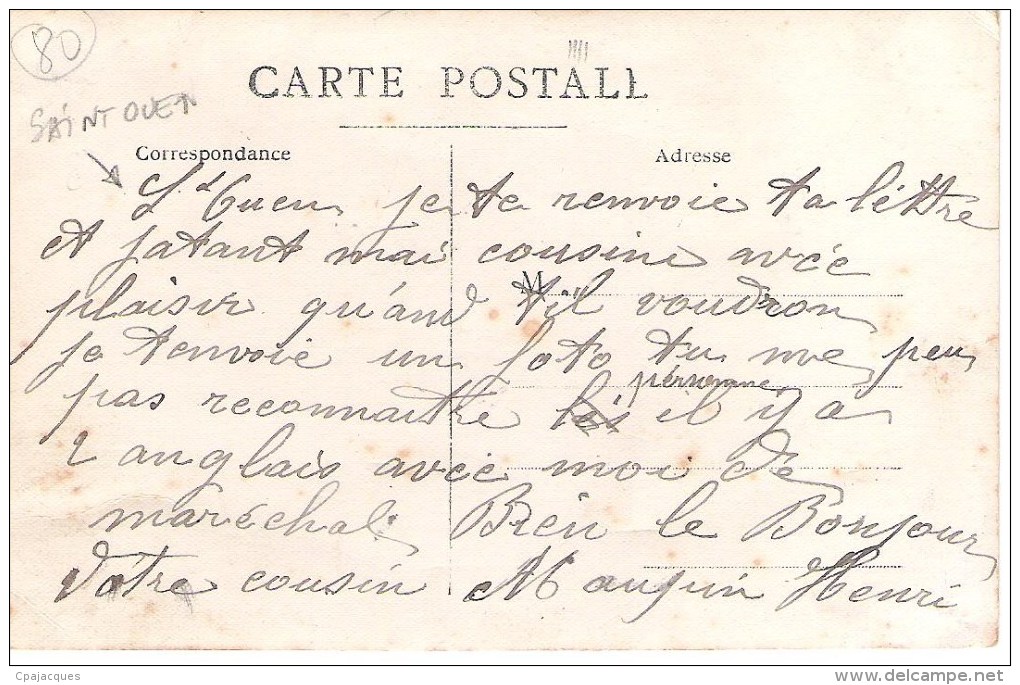 80
CARTE POSTALE
SAINT OUEN
Correspondance
Adresse
St Ouen je te renvoie ta léttre
et jatant mai cousine avéc
plaisir qu'and t'il voudron
M
je tenvoie un foto tu me peu
pérsonne
pas reconnaitre il i y a
2 anglais avéc moi de
maréchal Bien le Bonjour
Votre cousin Maugin Henri
Cpajacques
www.delcampe.net